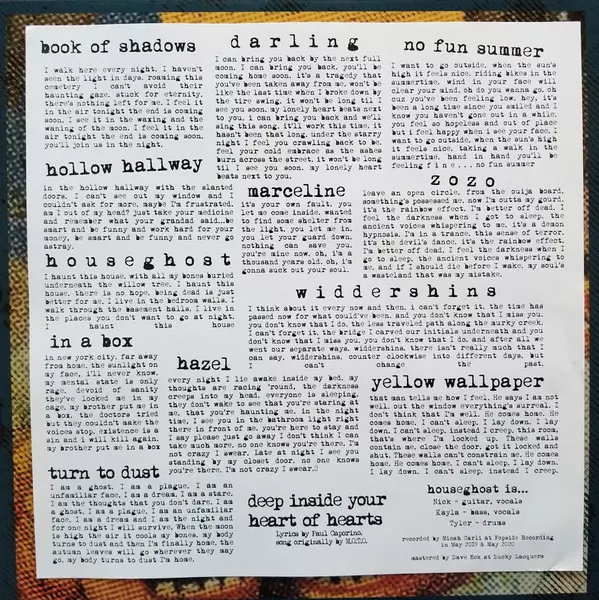 book of shadows
I walk here every night. I haven't
seen the light in days, roaming this
cemetery I can't avoid their
haunting gaze. stuck for eternity,
there's nothing left for me. I feel it
in the air tonight the end is coming
soon. I see it in the waxing and the
waning of the moon. I feel it in the
air tonight the end is coming soon.
you'll join us in the night.
hollow hallway
in the hollow hallway with the slanted
doors. I can't see out my window and I
couldn't ask for more. maybe I'm frustrated,
am I out of my head? just take your medicine
and remember what your grandad said...be
smart and be funny and work hard for your
money, be smart and be funny and never go
astray.
houseghost
I haunt this house, with all my bones buried
underneath the willow tree. I haunt this
house, there is no hope, being dead is just
better for me. I live in the bedroom walls, I
walk through the basement halls. I live in
the places you don't want to go at night.
I haunt this house
in a box
in new york city, far away
from home, the sunlight on
my face, i'll never know.
my mental state is only
rage, devoid of sanity
they've locked me in my
cage, my brother put me in
a box. the doctors tried
but they couldn't make the
voices stop. existence is a
sin and i will kill again.
my brother put me in a box
turn to dust
I am a ghost, I am a plague, I am an
unfamiliar face, I am a dream, I am a stare,
I am the thoughts that you don't dare. I am
a ghost, I am a plague, I am an unfamiliar
face, I am a dream and I am the night and
for one night I will survive. When the moon
is high the air it cools my bones, my body
turns to dust and then I'm finally home. the
autumn leaves will go wherever they may
go, my body turns to dust I'm home.
darling
I can bring you back by the next full
moon. I can bring you back, you'll be
coming home soon. it's a tragedy that
you've been taken away from me, won't be
like the last time when I broke down by
the tire swing. it won't be long til I
see you soon, my lonely heart beats next
to you. i can bring you back and we'll
sing this song, it'll work this time, it
hasn't been that long. under the starry
night I feel you crawling back to be,
feel your cold embrace as the ashes
burn across the street. it won't be long
til I see you soon, my lonely heart
beats next to you.
marceline
it's your own fault, you
let me come inside, wanted
to find some shelter from
the light. you let me in,
you let your guard down,
nothing can save you,
you're mine now. oh, i'm a
thousand years old. oh, i'm
gonna suck out your soul.
no fun summer
I want to go outside, when the sun's
high it feels nice. riding bikes in the
summertime, wind in your face will
clear your mind. oh do you wanna go, oh
cuz you've been feeling low. hey, it's
been a long time since you smiled and I
know you haven't gone out in a while.
you feel so hopeless and out of place
but i feel happy when i see your face. I
want to go outside, when the sun's high
it feels nice, taking a walk in the
summertime, hand in hand you'll be
feeling fine... no fun summer
zozo
leave an open circle, from the ouija board,
something's possessed me, now I'm outta my gourd.
it's the rainbow effect, I'm better off dead. I
feel the darkness when I got to sleep, the
ancient voices whispering to me, it's a demon
hypnosis, I'm in a trance, this sense of terror,
it's the devil's dance, it's the rainbow effect,
I'm better off dead. I feel the darkness when I go
to sleep, the ancient voices whispering to
me. and if I should die before I wake, my soul's
a wasteland that was my mistake.
widdershins
I think about it every now and then, i can't forget it. the time has
passed now for what could've been, and you don't know that I miss you,
you don't know that I do. the less traveled path along the murky creek,
I can't forget it. the bridge I carved our initials underneath and you
don't know that I miss you. you don't know that I do. and after all we
went our separate ways, widdershins. there isn't really much that I
can say, widdershins. counter clockwise into different days, but
I can't change the past.
hazel
every night I lie awake inside my bed, my
thoughts are racing 'round, the darkness
creeps into my head. everyone is sleeping,
they don't wake to see that you're staring at
me, that you're haunting me. in the night
time, I see you in the bathroom light right
there in front of me, you're here to stay and
I say please just go away I don't think I can
take much more. no one knows you're there. I'm
not crazy I swear. late at night I see you
standing by my closet door. no one knows
you're there. I'm not crazy I swear.
yellow wallpaper
that man tells me how I feel. He says I am not
well. out the window everything's surreal. I
don't think that I'm well. He comes home. He
comes home. I can't sleep. I lay down. I lay
down. I can't sleep, instead I creep. this room,
that's where I'm locked up. These walls
contain me, close the door, got it locked and
shut. These walls can't constrain me. He comes
home. He comes home. I can't sleep. I lay down.
I lay down. I can't sleep, instead I creep.
deep inside your
heart of hearts
Lyrics by Paul Caporino.
song originally by M.O.T.O.
houseghost is...
Nick - guitar, vocals
Kayla - bass, vocals
Tyler - drums
recorded by Micah Carli at Popside Recording
in May 2019 & May 2020
mastered by Dave Eck at Lucky Lacquers